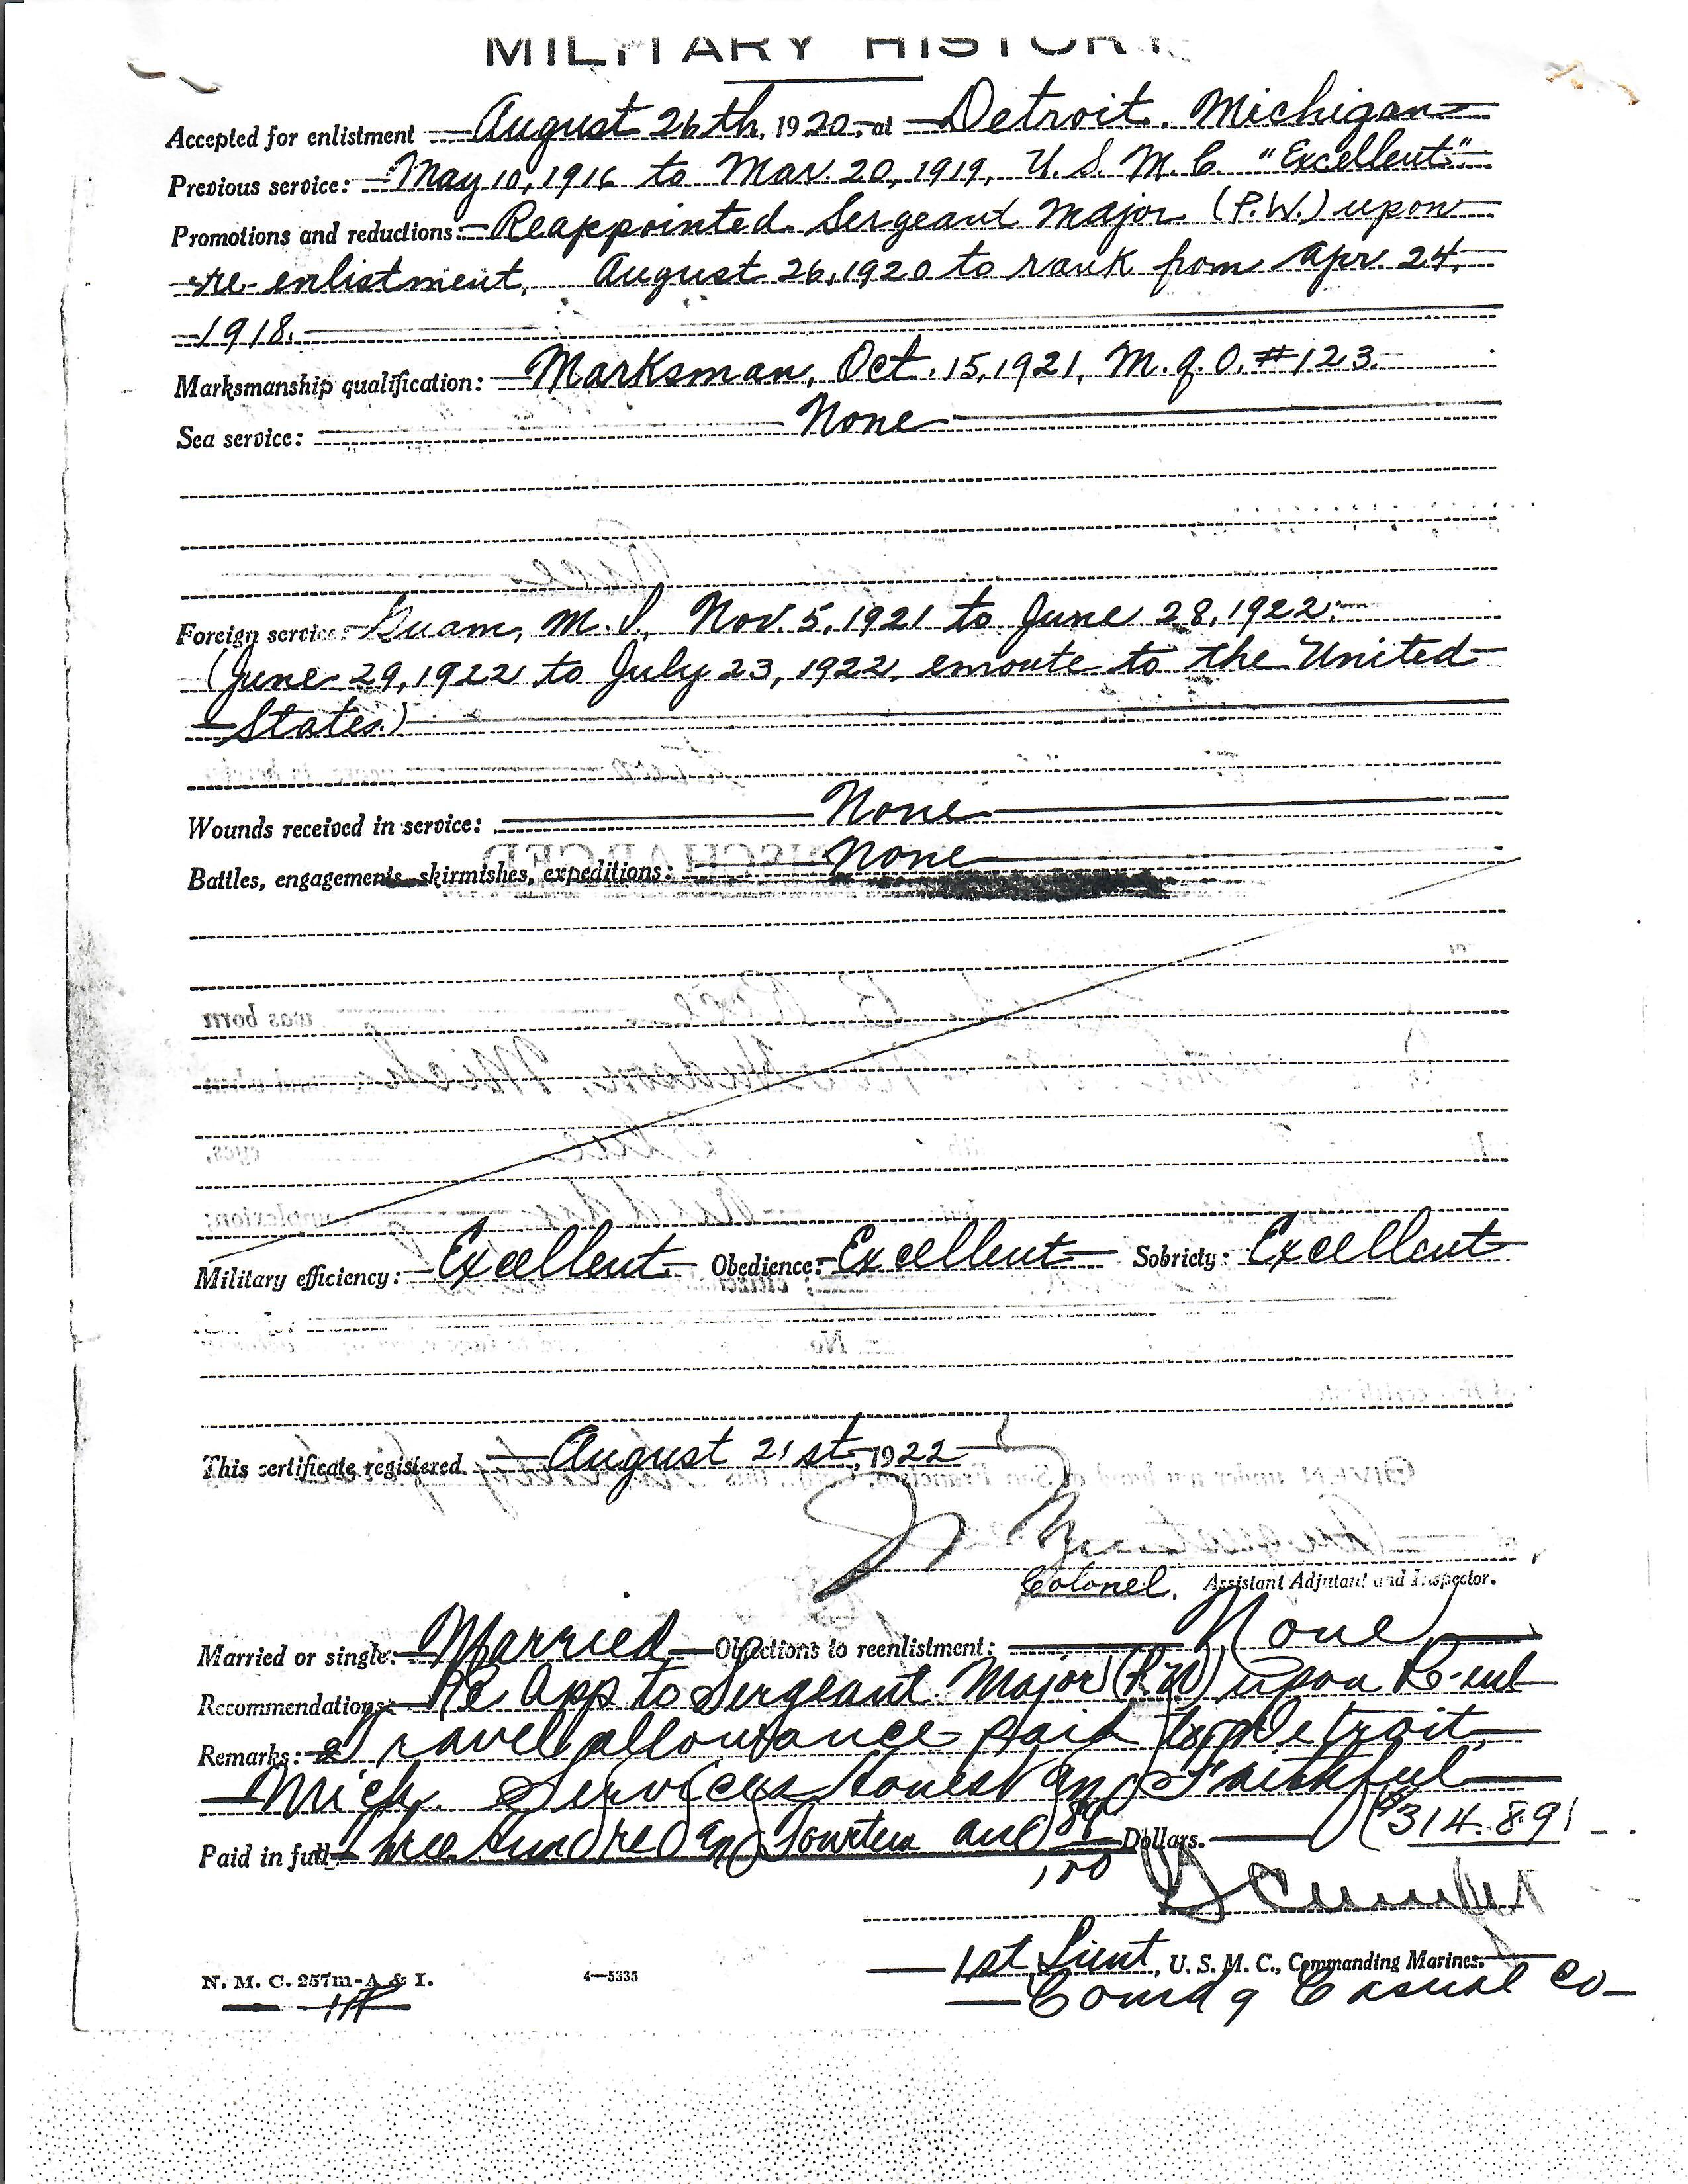 MILITARY HISTORY
Accepted for enlistment August 26th, 1920, at Detroit, Michigan
Previous service: May 10, 1916 to Mar. 20, 1919, U. S. M. C. "Excellent"
Promotions and reductions: Reappointed Sergeant Major (P.W.) upon
re-enlistment, August 26, 1920 to rank from Apr. 24,
1918.
Marksmanship qualification: Marksman, Oct. 15, 1921, M.G.O. #123.
Sea service: None
Foreign service: Guam, M.I., Nov. 5, 1921 to June 28, 1922.
(June 29, 1922 to July 23, 1922, enroute to the United
States.)
Wounds received in service: None
Battles, engagements, skirmishes, expeditions: None
Military efficiency: Excellent Obedience: Excellent Sobriety: Excellent
This certificate registered August 21st, 1922
Colonel, Assistant Adjutant and Inspector.
Married or single: Married Objections to reenlistment: None
Recommendations: Re App to Sergeant Major (P.W) upon Re-enl
Remarks: Travel allowance paid to Detroit,
Mich. Services honest and Faithful
Paid in full Three Hundred and Fourteen and 89/100 Dollars. ($314.89)
1st Lieut, U. S. M. C., Commanding Marines.
Comdg Casual Co
N. M. C. 257m-A & I. 4—5335